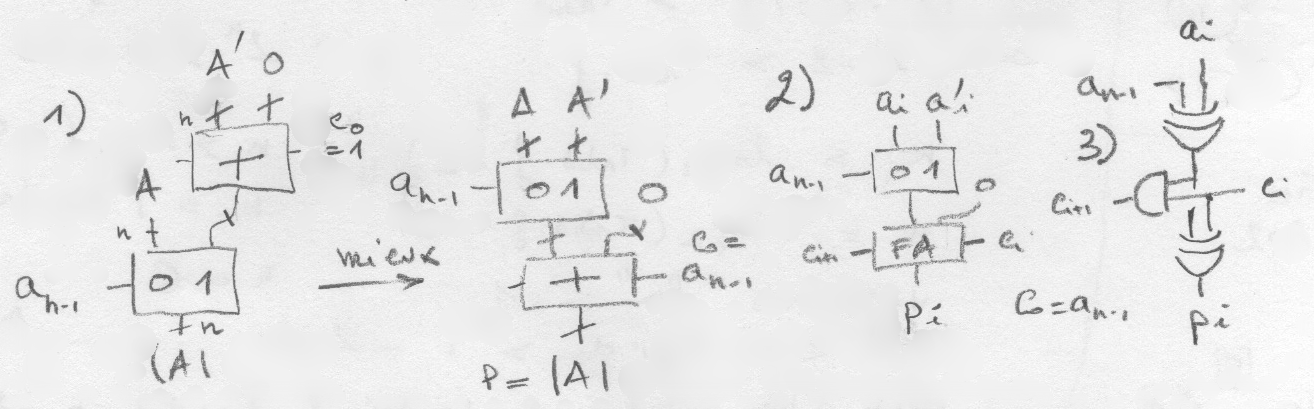 1)
A' O
n
c₀
=1
+
A
n
0 1
aₙ₋₁
n
|A|
mieux
A A'
aₙ₋₁
0 1
O
C₀=
aₙ₋₁
+
P = |A|
2)
ai a'i
aₙ₋₁
0 1
0
FA
ci+1
ci
pi
3)
ai
aₙ₋₁
ci+1
ci
C₀=aₙ₋₁
pi